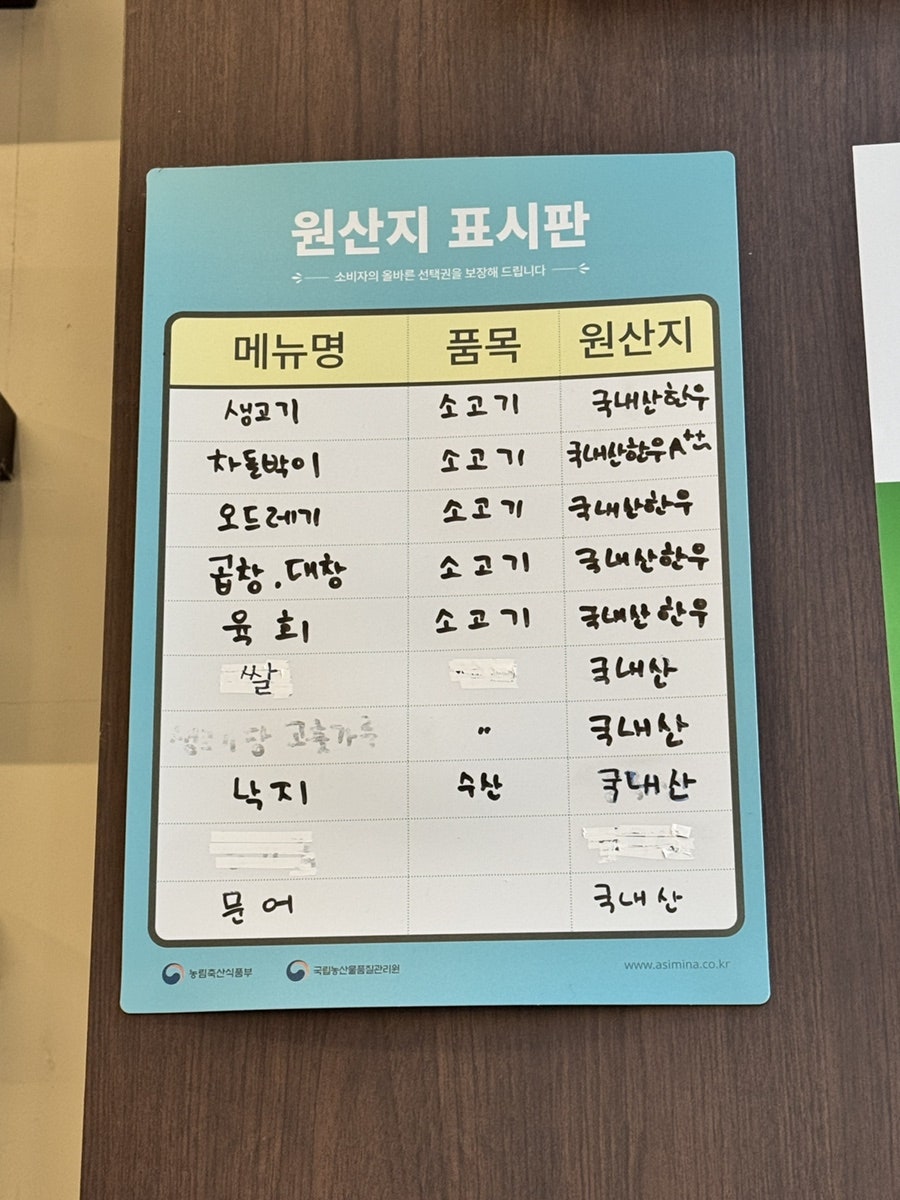 원산지 표시판
소비자의 올바른 선택권을 보장해 드립니다
메뉴명 품목 원산지
생고기 소고기 국내산한우
차돌박이 소고기 국내산한우A++
오드레기 소고기 국내산한우
곱창.대창 소고기 국내산한우
육회 소고기 국내산한우
쌀 국내산
고춧가루 〃 국내산
낙지 수산 국내산
문어 국내산
농림축산식품부 국립농산물품질관리원 www.asimina.co.kr